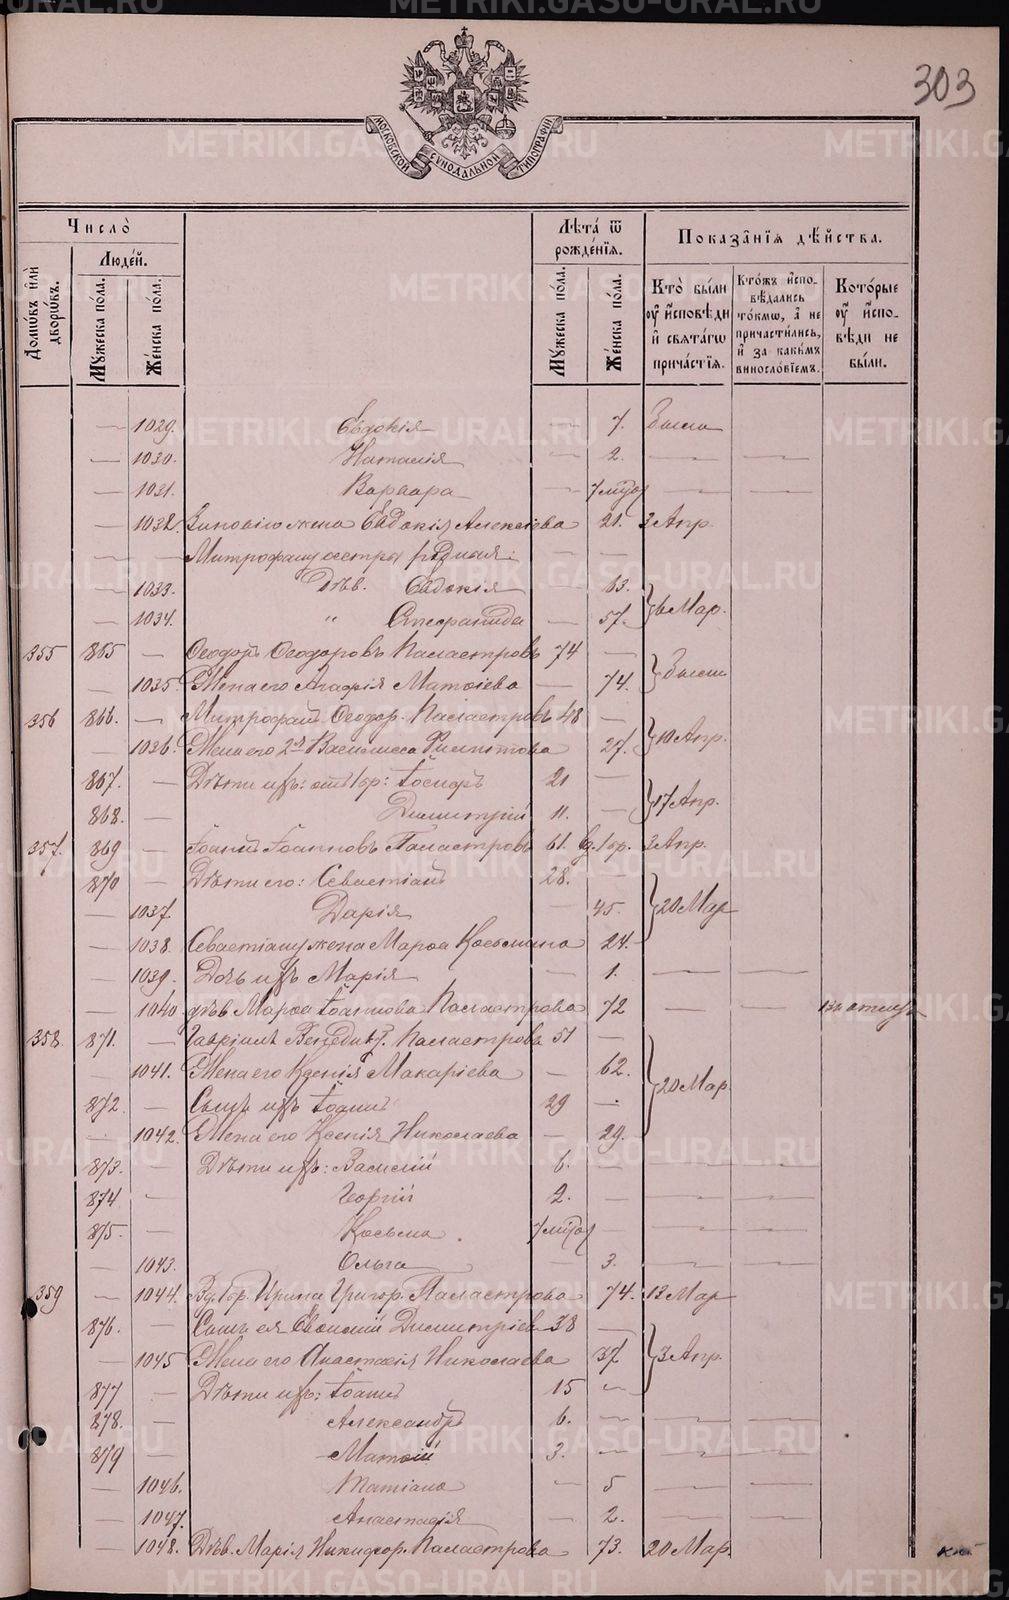 303
МОСКОВСКОЙ СѴНОДАЛЬНОЙ ТИПОГРАФІИ
Число̀
Домѡ́въ и҆лѝ дворѡ́въ.
Люде́й.
Мꙋ́жеска по́ла.
Же́нска по́ла.
Лѣ́та ѿ рожде́нїѧ.
Мꙋ́жеска по́ла.
Же́нска по́ла.
Показа̂нїѧ дѣ́йства.
Кто̀ бы́ли ᲂу҆ и҆́сповѣди и҆ свѧта́гѡ прича́стїѧ.
Кто́жъ и҆спо-вѣ́дались то́кмѡ, а҆ не причасти́лись, и҆ за каки́мъ виносло́вїемъ.
Кото́рые ᲂу҆ и҆́спо-вѣди не бы́ли.
— 1029. Евдокія — 7. Были
— 1030. Наталія — 2. — —
— 1031. Варвара — 7 мцов — —
— 1032. Зиновію жена Евдокія Алексіева 21. 3 Апр.
— — Митрофану сестры родныя: — —
— 1033. Дѣв. Евдокія 63.
— 1034. " Стефанида 57. 6 Мар.
355 865 — Ѳеодоръ Ѳеодоровъ Паластровъ 74 —
— 1035. Жена его Агафія Матѳіева — 74. Были
356 866. — Митрофанъ Ѳеодор. Паластровъ 48 —
— 1036. Жена его 2я Василисса Филиппова 27. 10 Апр.
867. — Дѣти ихъ: отъ 1 бр: Іосифъ 21 —
868. Димитрій 11. — 17 Апр.
357. 869 — Іоаннъ Іоанновъ Паластровъ 61. вд. 1 бр. 3 Апр.
870 — Дѣти его: Севастіанъ 28.
— 1037 Дарія — 45. 20 Мар
— 1038. Севастіану жена Марѳа Косьмина 24.
— 1039. Дочь ихъ Марія — 1. — —
— 1040 дѣв. Марѳа Іоаннова Паластрова 72 — —
358. 871. — Гавріилъ Бенедикт. Паластровъ 51 —
— 1041. Жена его Ксенія Макаріева — 62.
872 — Сынъ ихъ Іоаннъ 29 — 20 Мар.
— 1042. Жена его Ксенія Николаева — 29.
873. — Дѣти ихъ: Василій 6. — — —
874 — Георгій 2. — — —
875. — Косьма. 7 мцов — — —
— 1043. Ольга — 3. — —
359 — 1044. Вд. 1 бр. Ирина Григор. Паластрова 74. 13 Мар
876. — Сынъ ея Евѳимій Димитріев 38 —
— 1045 Жена его Анастасія Николаева 37 3 Апр.
877 — Дѣти ихъ: Іоаннъ 15 —
878. — Александръ 6. — — —
879 — Матѳій 3. — — —
— 1046. Татіана — 5 — —
— 1047. Анастасія — 2. — —
— 1048. Дѣв. Марія Никифор. Паластрова 73. 20 Мар.
METRIKI.GASO-URAL.RU